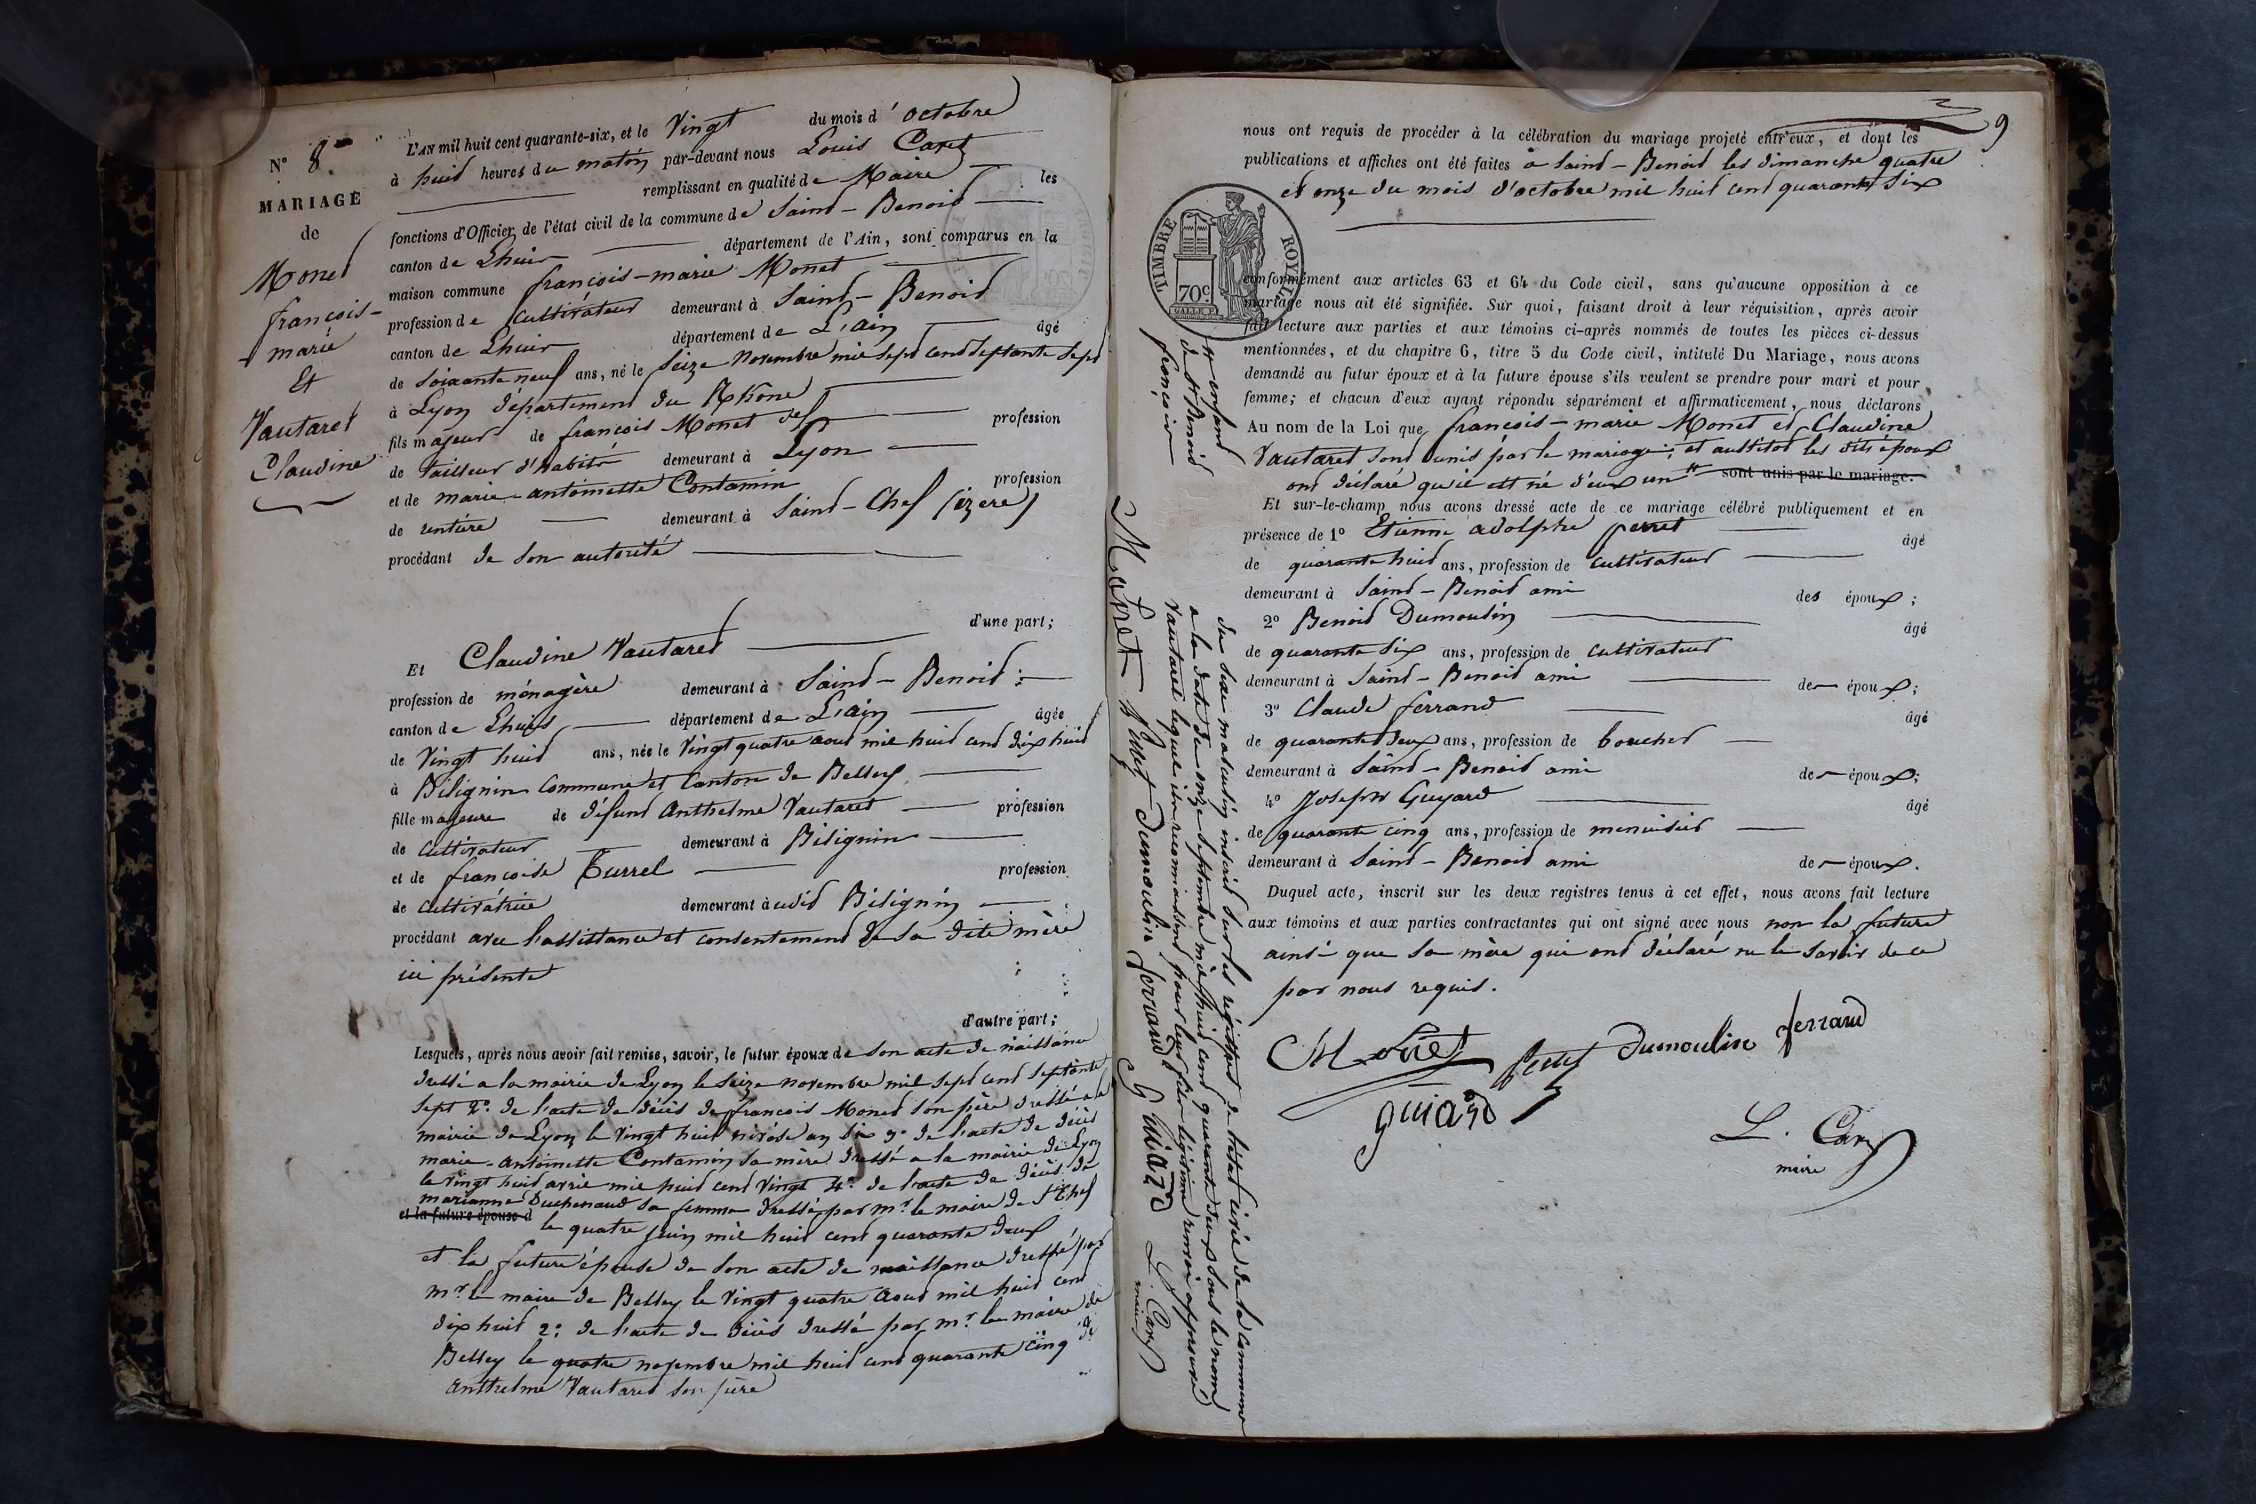 N° 8
MARIAGE
de
Monet
françois-
marie
Et
Vautaret
Claudine
L'AN mil huit cent quarante-six, et le Vingt du mois d'octobre
à huit heures du matin par-devant nous Louis Caret
remplissant en qualité de Maire les
fonctions d'Officier de l'état civil de la commune de Saint-Benoit
canton de Lhuis département de l'Ain, sont comparus en la
maison commune françois-marie Monet
profession de Cultivateur demeurant à Saint-Benoit
canton de Lhuis département de L'ain âgé
de soixante neuf ans, né le Seize Novembre mil sept cent septante sept
à Lyon département du Rhône
fils majeur de françois Monet profession
de tailleur d'habits demeurant à Lyon
et de marie-antoinette Contamin profession
de rentière demeurant à Saint-Chef (izere)
procédant de son autorité
d'une part;
Et Claudine Vautaret
profession de ménagère demeurant à Saint-Benoit
canton de Lhuis département de L'ain âgée
de Vingt huit ans, née le Vingt quatre aout mil huit cent dix huit
à Bilignin Commune et Canton de Belley
fille majeure de défunt Anthelme Vautaret profession
de Cultivateur demeurant à Bilignin
et de françoise Turrel profession
de Cultivatrice demeurant à udit Bilignin
procédant avec l'assistance et consentement de sa dite mère
ici présente
d'autre part;
Lesquels, après nous avoir fait remise, savoir, le futur époux de son acte de naissance
dressé a la mairie de Lyon le Seize novembre mil sept cent septante
sept 2° de l'acte de décès de françois Monet son père dressé a la
mairie de Lyon le Vingt huit nivôse an six 3° de l'acte de décès
marie-antoinette Contamin sa mère dressé a la mairie de Lyon
le Vingt huit avril mil huit cent Vingt 4° de l'acte de décès de
marianne Duchenaud sa femme dressé par mr. le maire de St Chef
et la future épouse d
le quatre juin mil huit cent quarante deux
et la future épouse de son acte de naissance dressé par
mr. le maire de Belley le Vingt quatre aout mil huit cent
dix huit 2° de l'acte de décès dressé par mr. le maire de
Belley le quatre novembre mil huit cent quarante cinq de
Anthelme Vautaret son père
9
nous ont requis de procéder à la célébration du mariage projeté entr'eux, et dont les
publications et affiches ont été faites à Saint-Benoit les dimanche quatre
et onze du mois d'octobre mil huit cent quarante six
TIMBRE ROYAL
70c
conformément aux articles 63 et 64 du Code civil, sans qu'aucune opposition à ce
mariage nous ait été signifiée. Sur quoi, faisant droit à leur réquisition, après avoir
fait lecture aux parties et aux témoins ci-après nommés de toutes les pièces ci-dessus
mentionnées, et du chapitre 6, titre 5 du Code civil, intitulé Du Mariage, nous avons
demandé au futur époux et à la future épouse s'ils veulent se prendre pour mari et pour
femme; et chacun d'eux ayant répondu séparément et affirmativement, nous déclarons
Au nom de la Loi que françois-marie Monet et Claudine
Vautaret sont unis par le mariage; et aussitot les dits époux
ont déclaré qu'il est né d'eux un sont unis par le mariage.
Et sur-le-champ nous avons dressé acte de ce mariage célébré publiquement et en
présence de 1° Etienne adolphe perret âgé
de quarante huit ans, profession de Cultivateur
demeurant à Saint-Benoit ami des époux;
2° Benoit Dumoulin âgé
de quarante six ans, profession de Cultivateur
demeurant à Saint-Benoit ami de époux;
3° Claude ferrand âgé
de quarante deux ans, profession de boucher
demeurant à Saint-Benoit ami de époux;
4° Joseph Guyard âgé
de quarante cinq ans, profession de menuisier
demeurant à Saint-Benoit ami de époux.
Duquel acte, inscrit sur les deux registres tenus à cet effet, nous avons fait lecture
aux témoins et aux parties contractantes qui ont signé avec nous non la future
ainsi que sa mère qui ont déclaré ne le savoir de ce
par nous requis.
Monet perret Dumoulin ferrand
guiard
L. Caret
maire
enfant
de St Benoit
du sexe masculin inscrit sur les régistres de l'état civil de la Commune
a la date du onze septembre mil huit cent quarante deux sous le nom
Vautaret lequel ils reconnaissent pour leur fils légitime renvoi approuvé
Monet Dumoulin ferrand Guiard L. Caret
maire